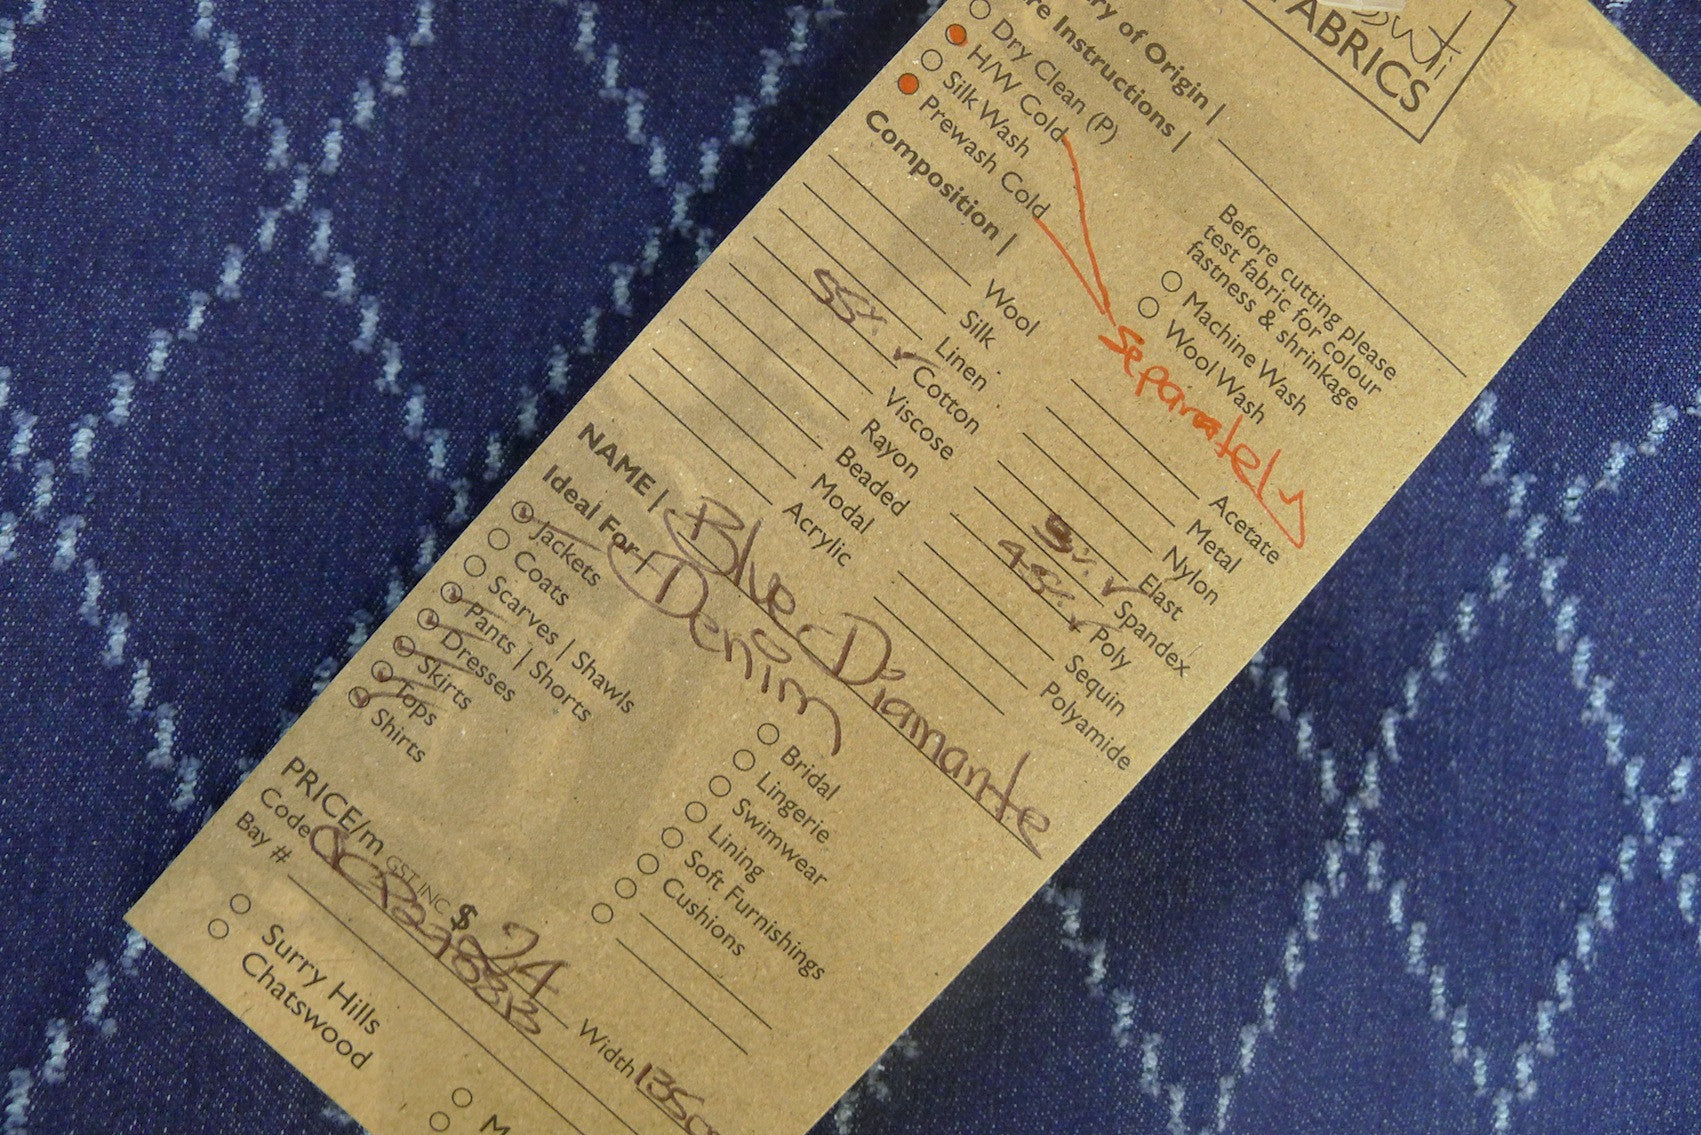 FABRICS
ry of Origin |
re Instructions |
Dry Clean (P)
H/W Cold
Silk Wash
Prewash Cold
Before cutting please
test fabric for colour
fastness & shrinkage
Machine Wash
Wool Wash
Separately
Composition |
Wool
Silk
Linen
55% Cotton
Viscose
Rayon
Beaded
Modal
Acrylic
Acetate
Metal
Nylon
Elast
Spandex
Poly
Sequin
Polyamide
NAME | Blue Diamante
Denim
Ideal For |
Jackets
Coats
Scarves | Shawls
Pants | Shorts
Dresses
Skirts
Tops
Shirts
Bridal
Lingerie
Swimwear
Lining
Soft Furnishings
Cushions
PRICE/m GST INC $ 24
Code
Width 135c
Bay #
Surry Hills
Chatswood
M